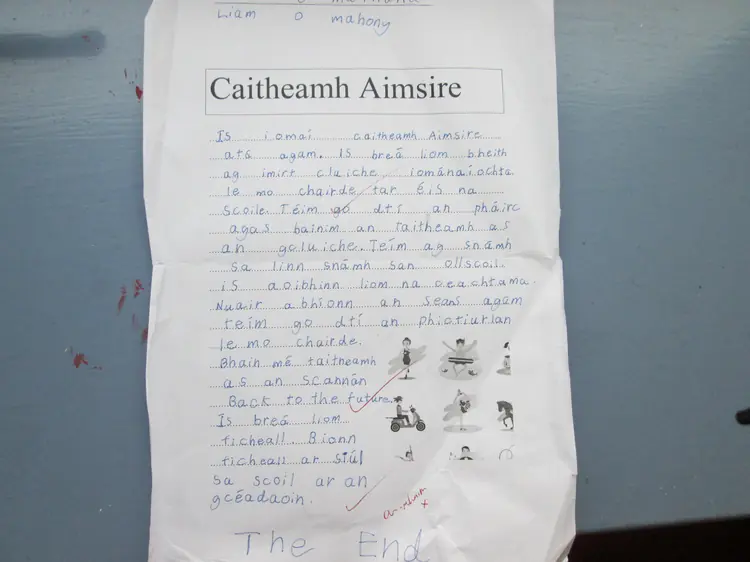 Liam O mahony
Caitheamh Aimsire
Is iomaí caitheamh Aimsire
atá agam. Is breá liom bheith
ag imirt cluiche iománaíochta
le mo chairde tar éis na
Scoile. Téim go dtí an pháirc
agas bainim an taitheamh as
an gcluiche. Teím ag snámh
sa linn snámh san ollscoil.
is aoibhinn liom na ceachtama.
Nuair a bhíonn an Seans agam
teím go dtí an phictiurlan
le mo chairde.
Bhain mé taitheamh
as an scannán
Back to the future.
Is breá liom
ficheall. Bíonn
ficheall ar siúl
sa scoil ar an
gcéadaoin.
The End